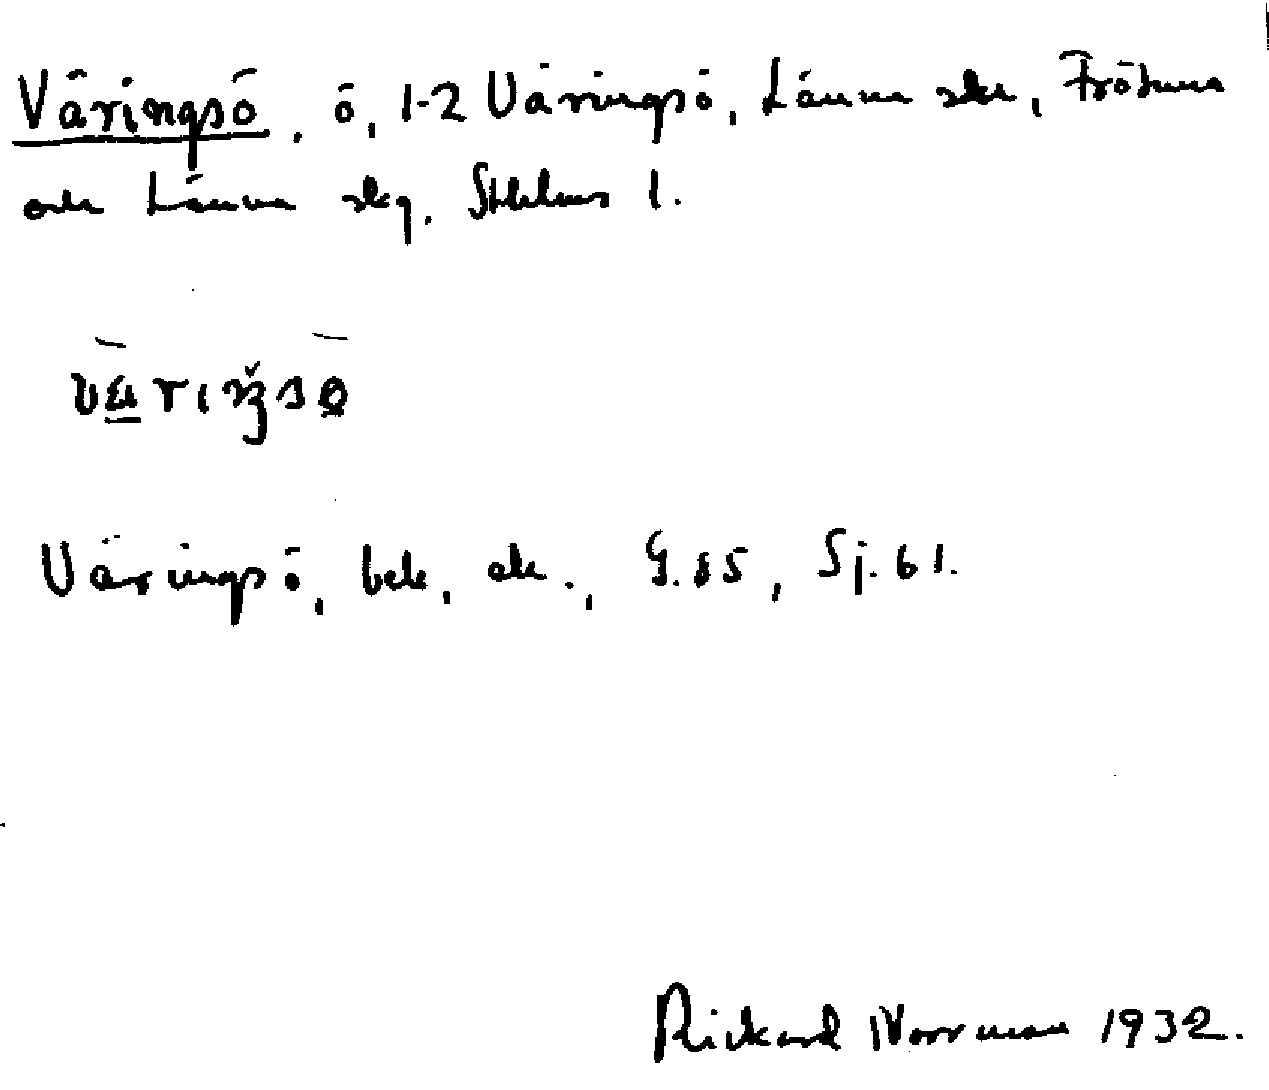 Väringsö, ö, 1-2 Väringsö, Länna skn, Frötuna
och Länna skg, Sthlms l.
Väringsö, bek, ek., G.65, Sj.61.
Rickard Norrman 1932.